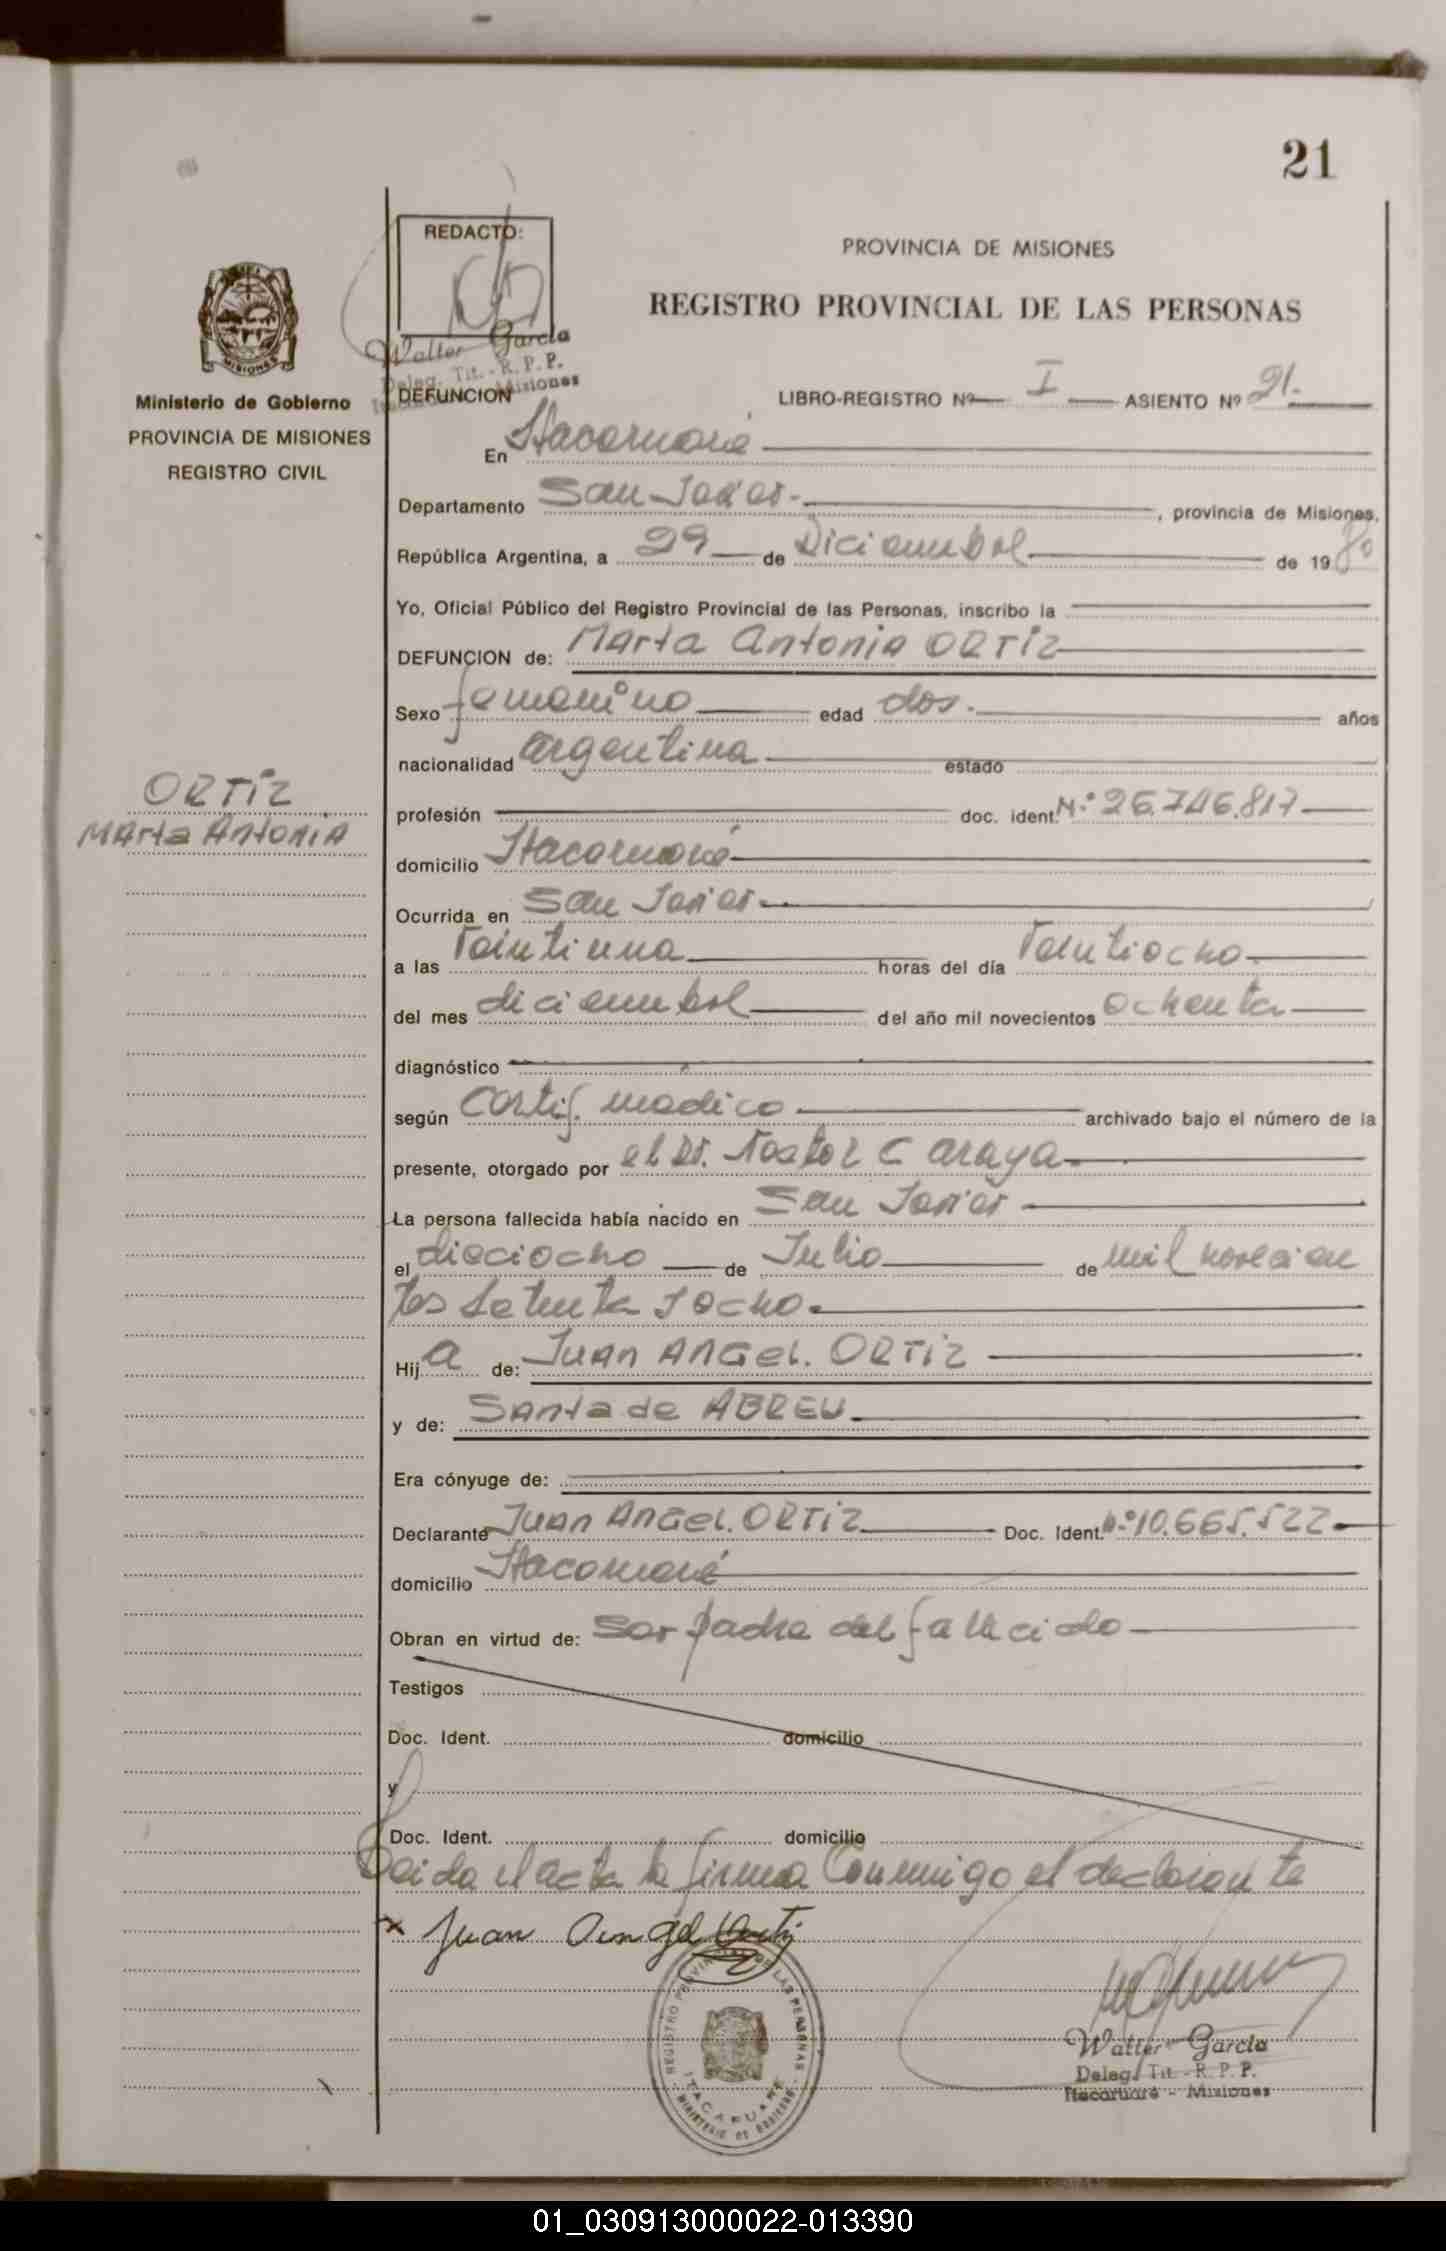 21
REDACTO:
PROVINCIA DE MISIONES
REGISTRO PROVINCIAL DE LAS PERSONAS
MISIONES
Walter García
Deleg. Tit. - R. P. P.
Misiones
Ministerio de Gobierno
PROVINCIA DE MISIONES
REGISTRO CIVIL
DEFUNCION
LIBRO-REGISTRO Nº I ASIENTO Nº 21.
En Itacaruaré
Departamento San Javier. , provincia de Misiones,
República Argentina, a 29 de Diciembre de 1980
Yo, Oficial Público del Registro Provincial de las Personas, inscribo la
DEFUNCION de: Marta Antonia ORTIZ
Sexo femenino edad dos. años
nacionalidad argentina estado
ORTIZ
Marta Antonia
profesión doc. ident. N.º 26.746.817
domicilio Itacaruaré
Ocurrida en San Javier
a las Veintiuna horas del día Veintiocho
del mes diciembre del año mil novecientos ochenta
diagnóstico
según Certif. medico archivado bajo el número de la
presente, otorgado por el Dr. Nestor C Araya
La persona fallecida había nacido en San Javier
el dieciocho de Julio de mil novecien
tos setenta y ocho
Hija de: Juan Angel. ORTIZ
y de: Santa de ABREU
Era cónyuge de:
Declarante Juan Angel. ORTIZ Doc. Ident. N.º 10.665.522
domicilio Itacaruaré
Obran en virtud de: ser padre del fallecido
Testigos
Doc. Ident. domicilio
y
Doc. Ident. domicilio
Leida el acta la firma Conmigo el declarante
x Juan Angel Ortiz
REGISTRO PROVINCIAL DE LAS PERSONAS
ITACARUARE
MINISTERIO DE GOBIERNO
Walter García
Deleg. Tit. - R. P. P.
Itacaruaré - Misiones
01_030913000022-013390